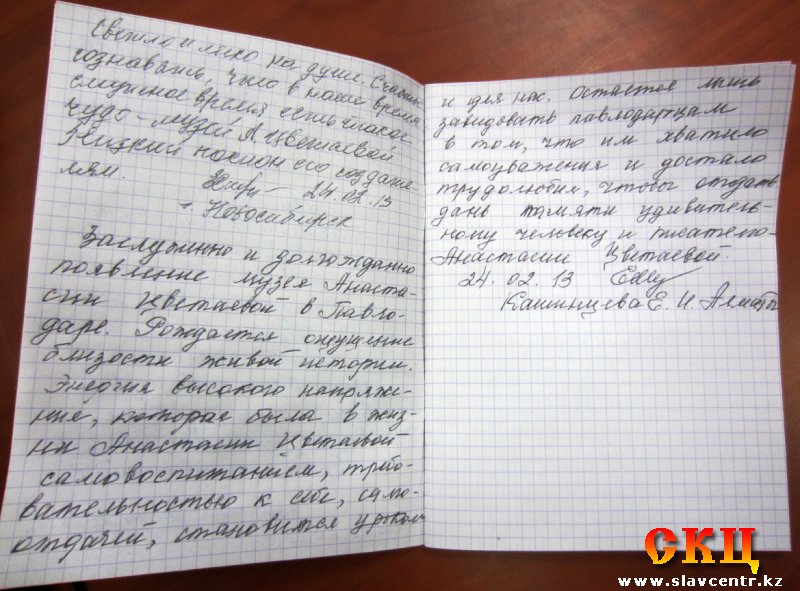 Светло и тихо на душе. Счастье
сознавать, что в наше время
смутное время есть такое
чудо - музей А. Цветаевой
Низкий поклон его создате
лям.
24.02.13
г. Новосибирск
Заслуженно и долгожданно
появление музея Анаста-
сии Цветаевой в Павло-
даре. Рождается ощущение
близости живой истории.
Энергия высокого напряже-
ние, которая была в жиз-
ни Анастасии Цветаевой
самовоспитанием, требо-
вательностью к себе, само-
отдачей, становится уроком
и для нас. Остается лишь
завидовать павлодарцам
в том, что им хватило
самоуважения и достало
трудолюбия, чтобы отдать
дань памяти удивитель-
ному человеку и писателю-
Анастасии Цветаевой.
24.02.13
Кашинцева Е. И. Алматы
СКЦ
www.slavcentr.kz